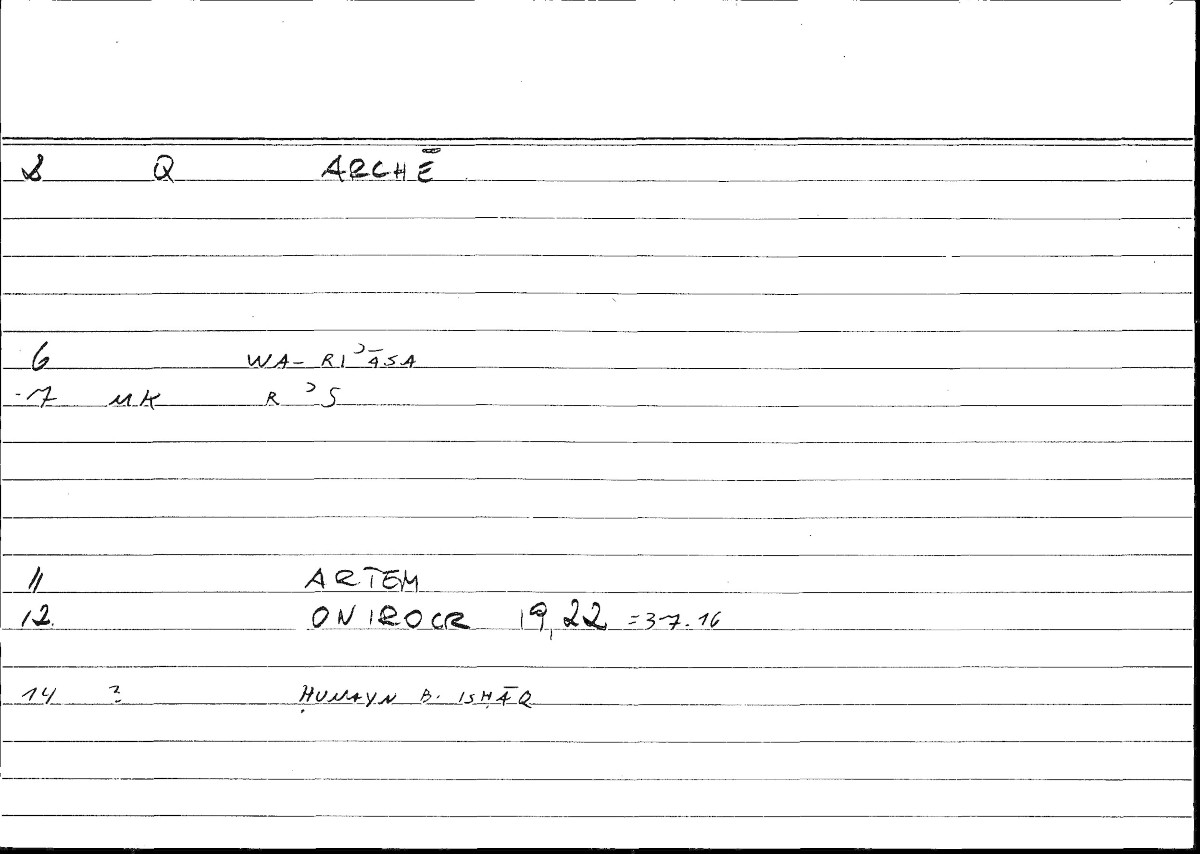 Q ARCHĒ
6 WA- RIʾĀSA
7 MK R ʾ S
11 ARTEM
12. ONIROCR 19,22 =37.16
14 ? ḤUNAYN B. ISḤĀQ